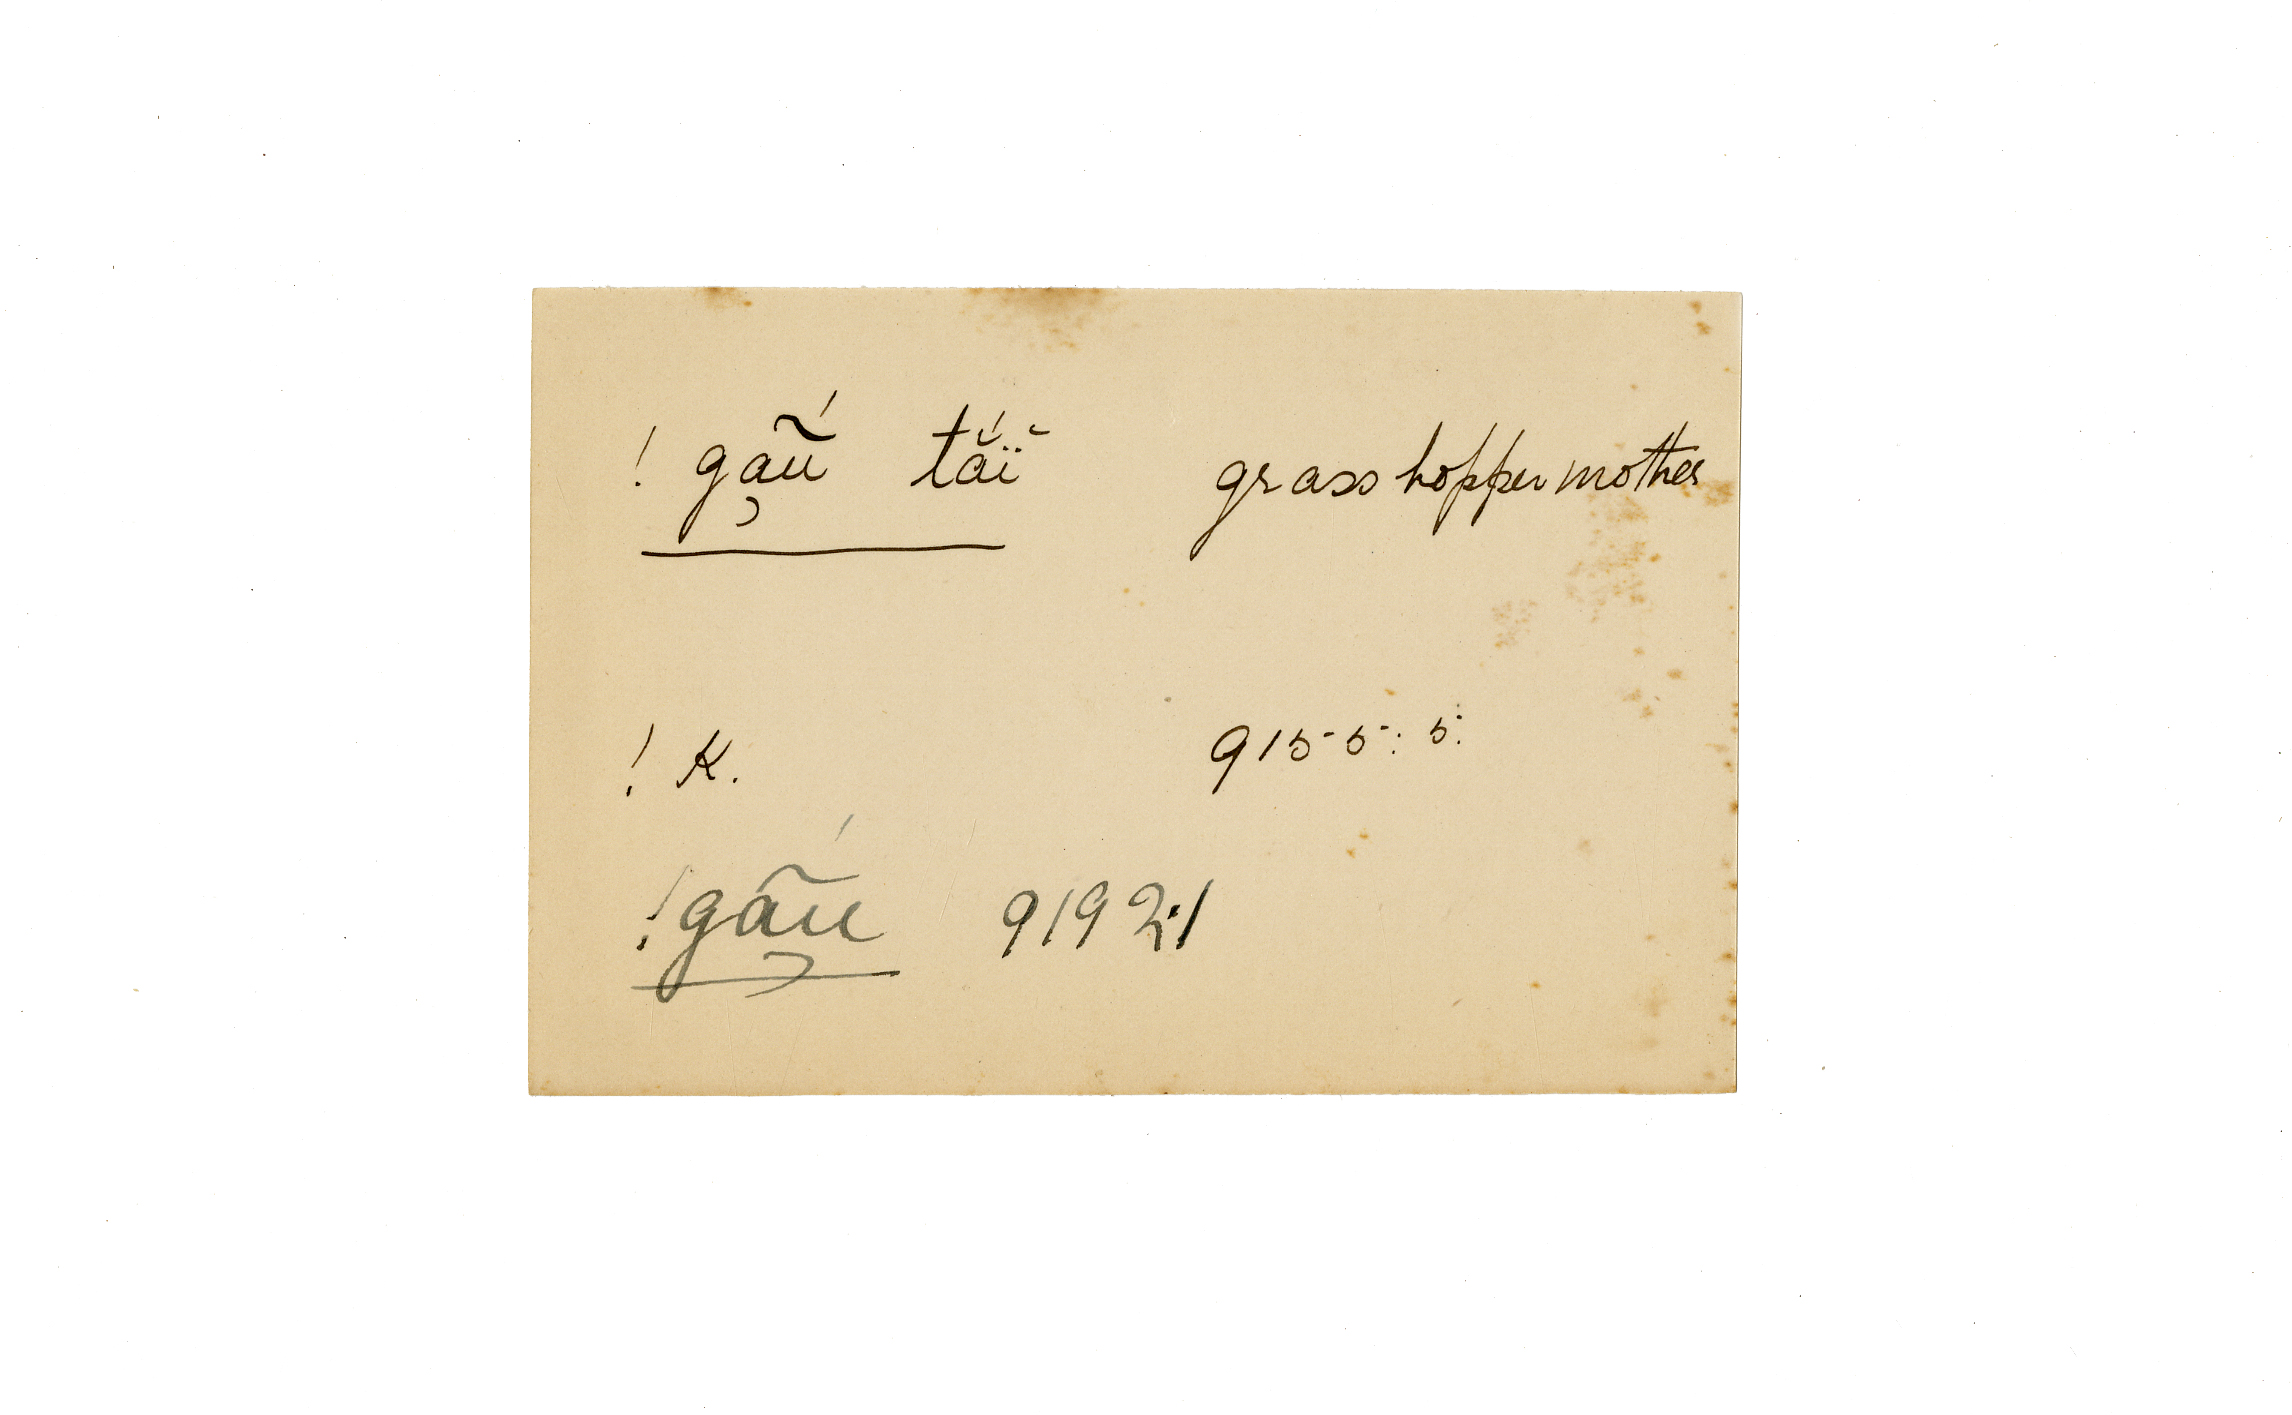 ! gã̜ú tắĭ̈ grass hopper mother
! K. 9155: 5.
!gã̜ú 9192:1